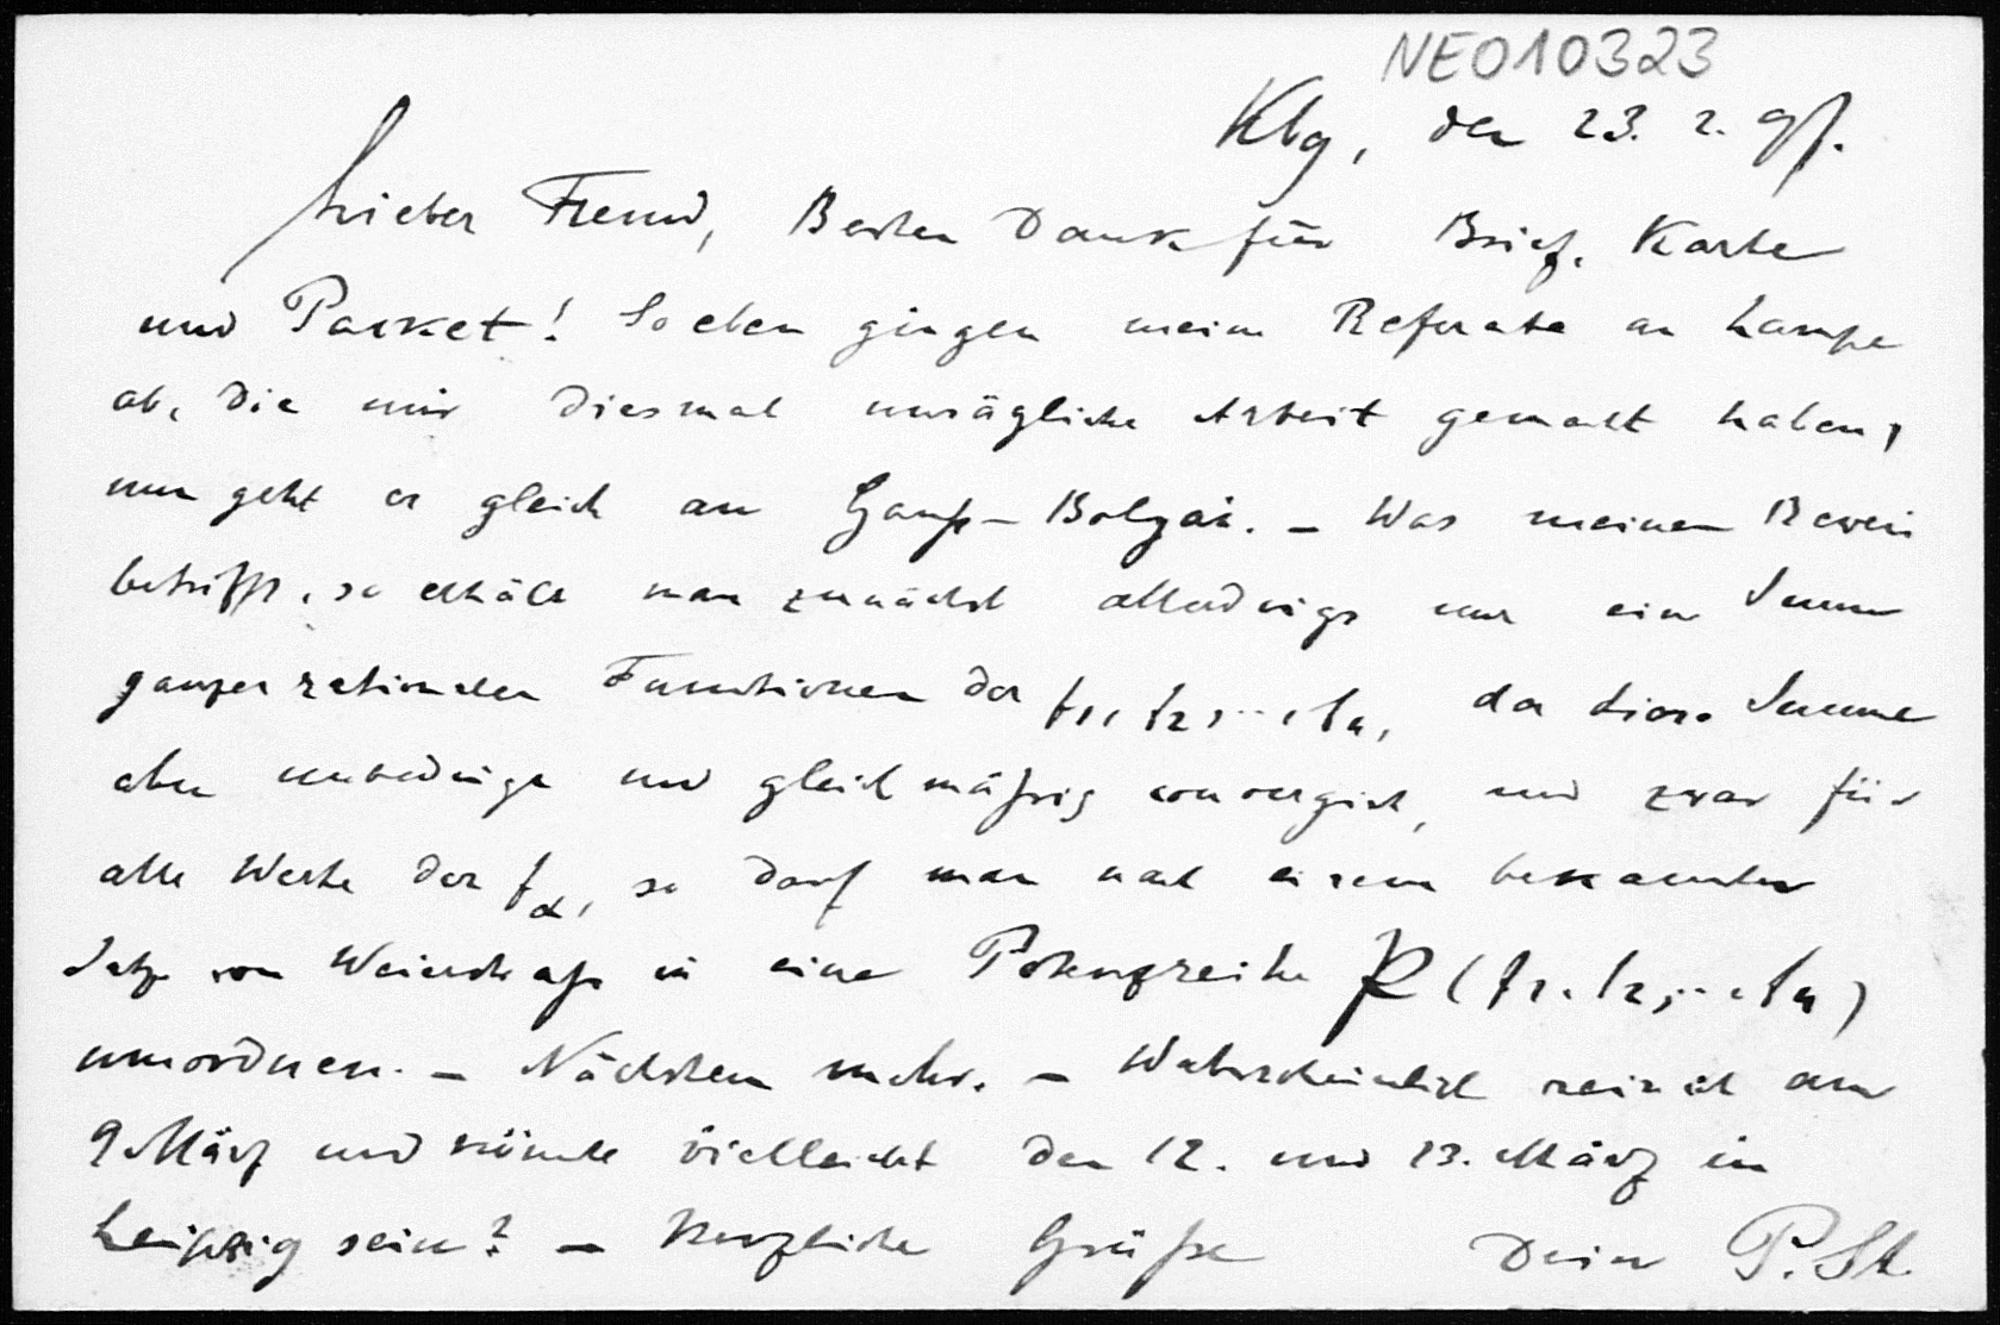 NEO10323
Kbg, den 23. 2. 97.
Lieber Freund, Besten Dank für Brief, Karte
und Packet! Soeben gingen meine Referate an Lampe
ab, die mir diesmal unsägliche Arbeit gemacht haben,
nun geht es gleich an Gauß-Bolyai. – Was meinen Beweis
betrifft, so erhält man zunächst allerdings nur eine Summe
ganzer rationaler Functionen der t1, t2, .. , tn, da diese Summe
aber unbedingt und gleichmäßig convergirt, und zwar für
alle Werte der tα, so darf man nach einem bekannten
Satze von Weierstraß in eine Potenzreihe P (t1, t2, .. , tn)
umordnen. – Nächstens mehr. – Wahrscheinlich reise ich am
9 März und könnte vielleicht den 12. und 13. März in
Leipzig sein? – Herzliche Grüße Dein P. St.